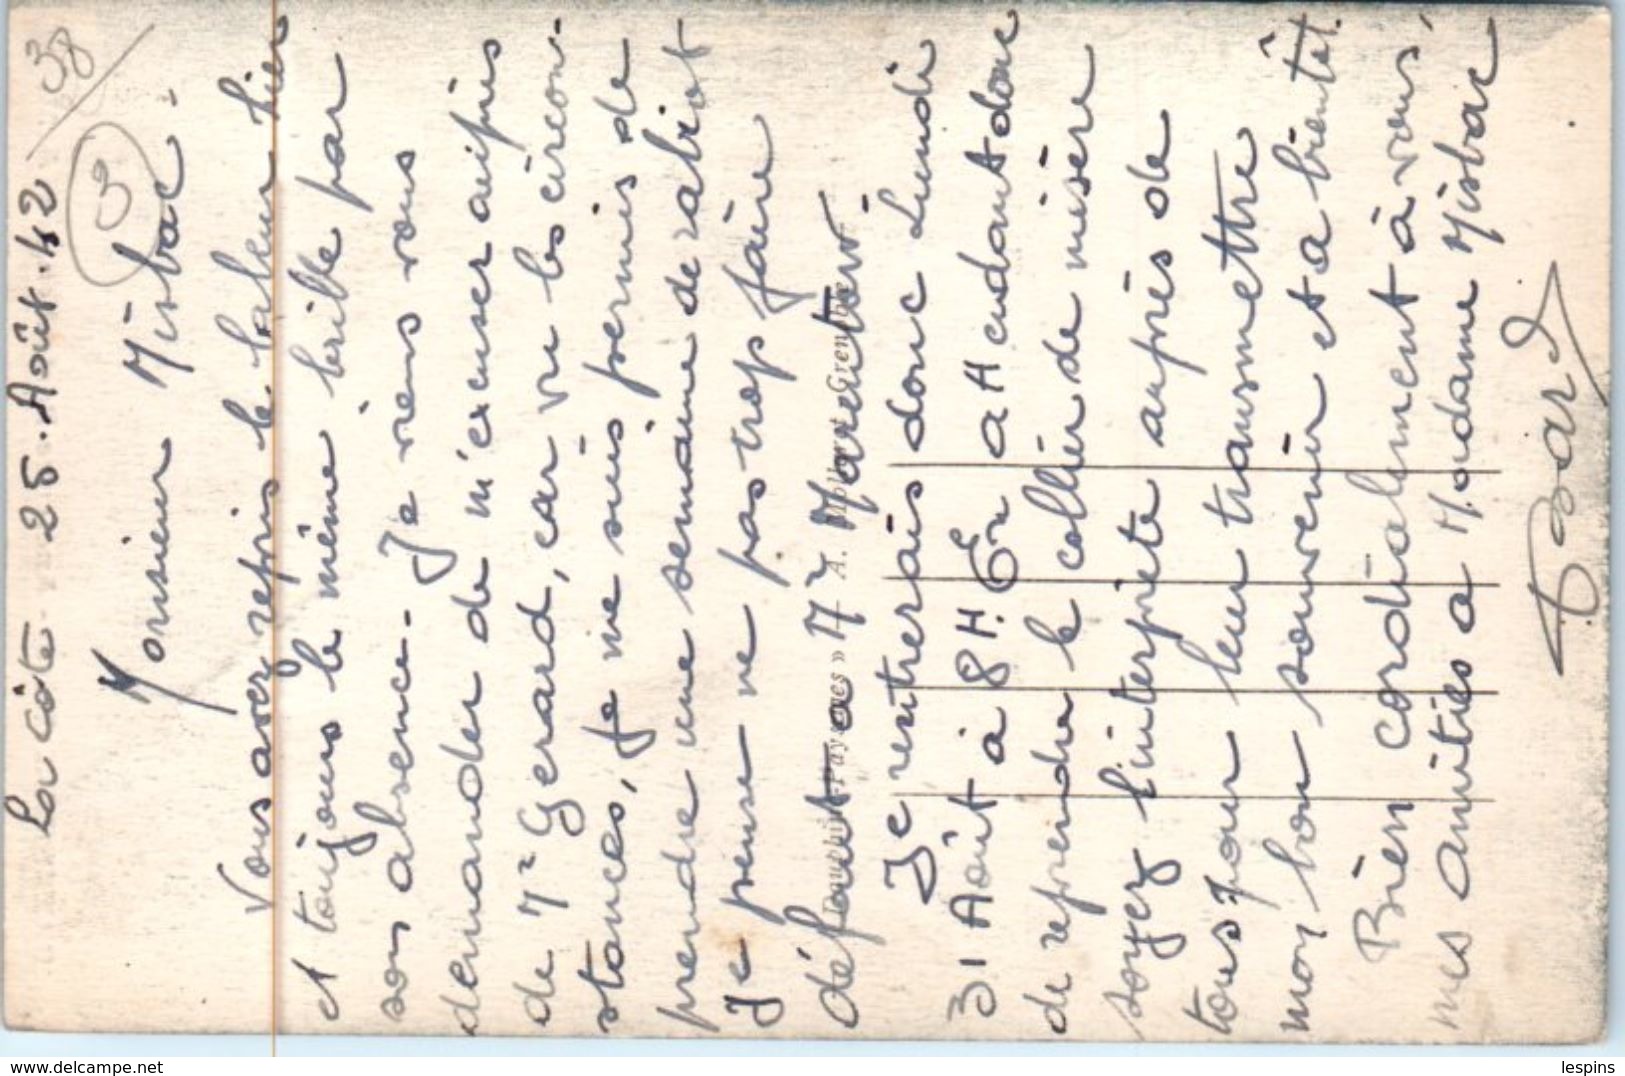 38
3
La Côte 25. Août. 42
Monsieur Misbac.
Vous avez repris le labeur hier
et toujours le même brille par
son absence. Je viens vous
demander de m'excuser auprès
de Mr Gerard, car vu les circon-
stances, je me suis permis de
prendre une semaine de rabiot
Je pense ne pas trop faire
défaut a Mr Marator.
Je rentrerais donc Lundi
31 Août à 8 H. En attendant donc
de reprendre le collier de misère
soyez l'interprète auprès de
tous pour leur transmettre
mon bon souvenir et a bientôt.
Bien cordialement à vous,
mes amitiés a Madame Misbac
Bard
A.
lespins